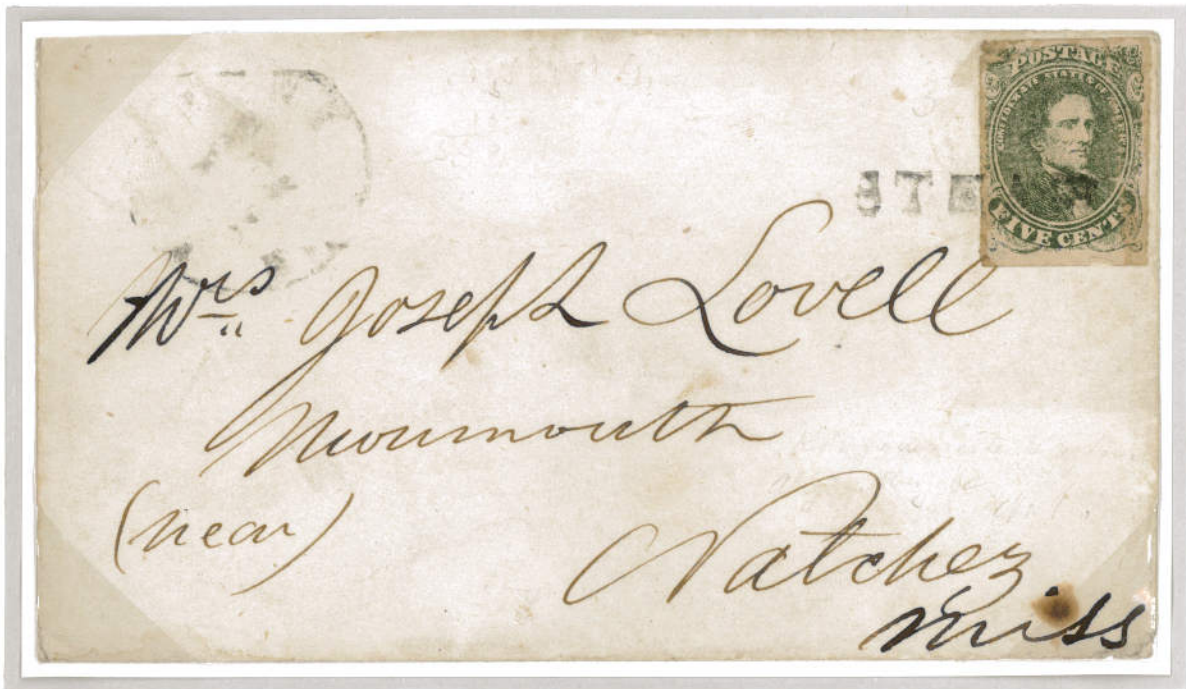 POSTAGE
CONFEDERATE STATES OF AMERICA
FIVE CENTS
STE
Mrs. Joseph Lovell
Monmouth
(near)
Natchez
Miss